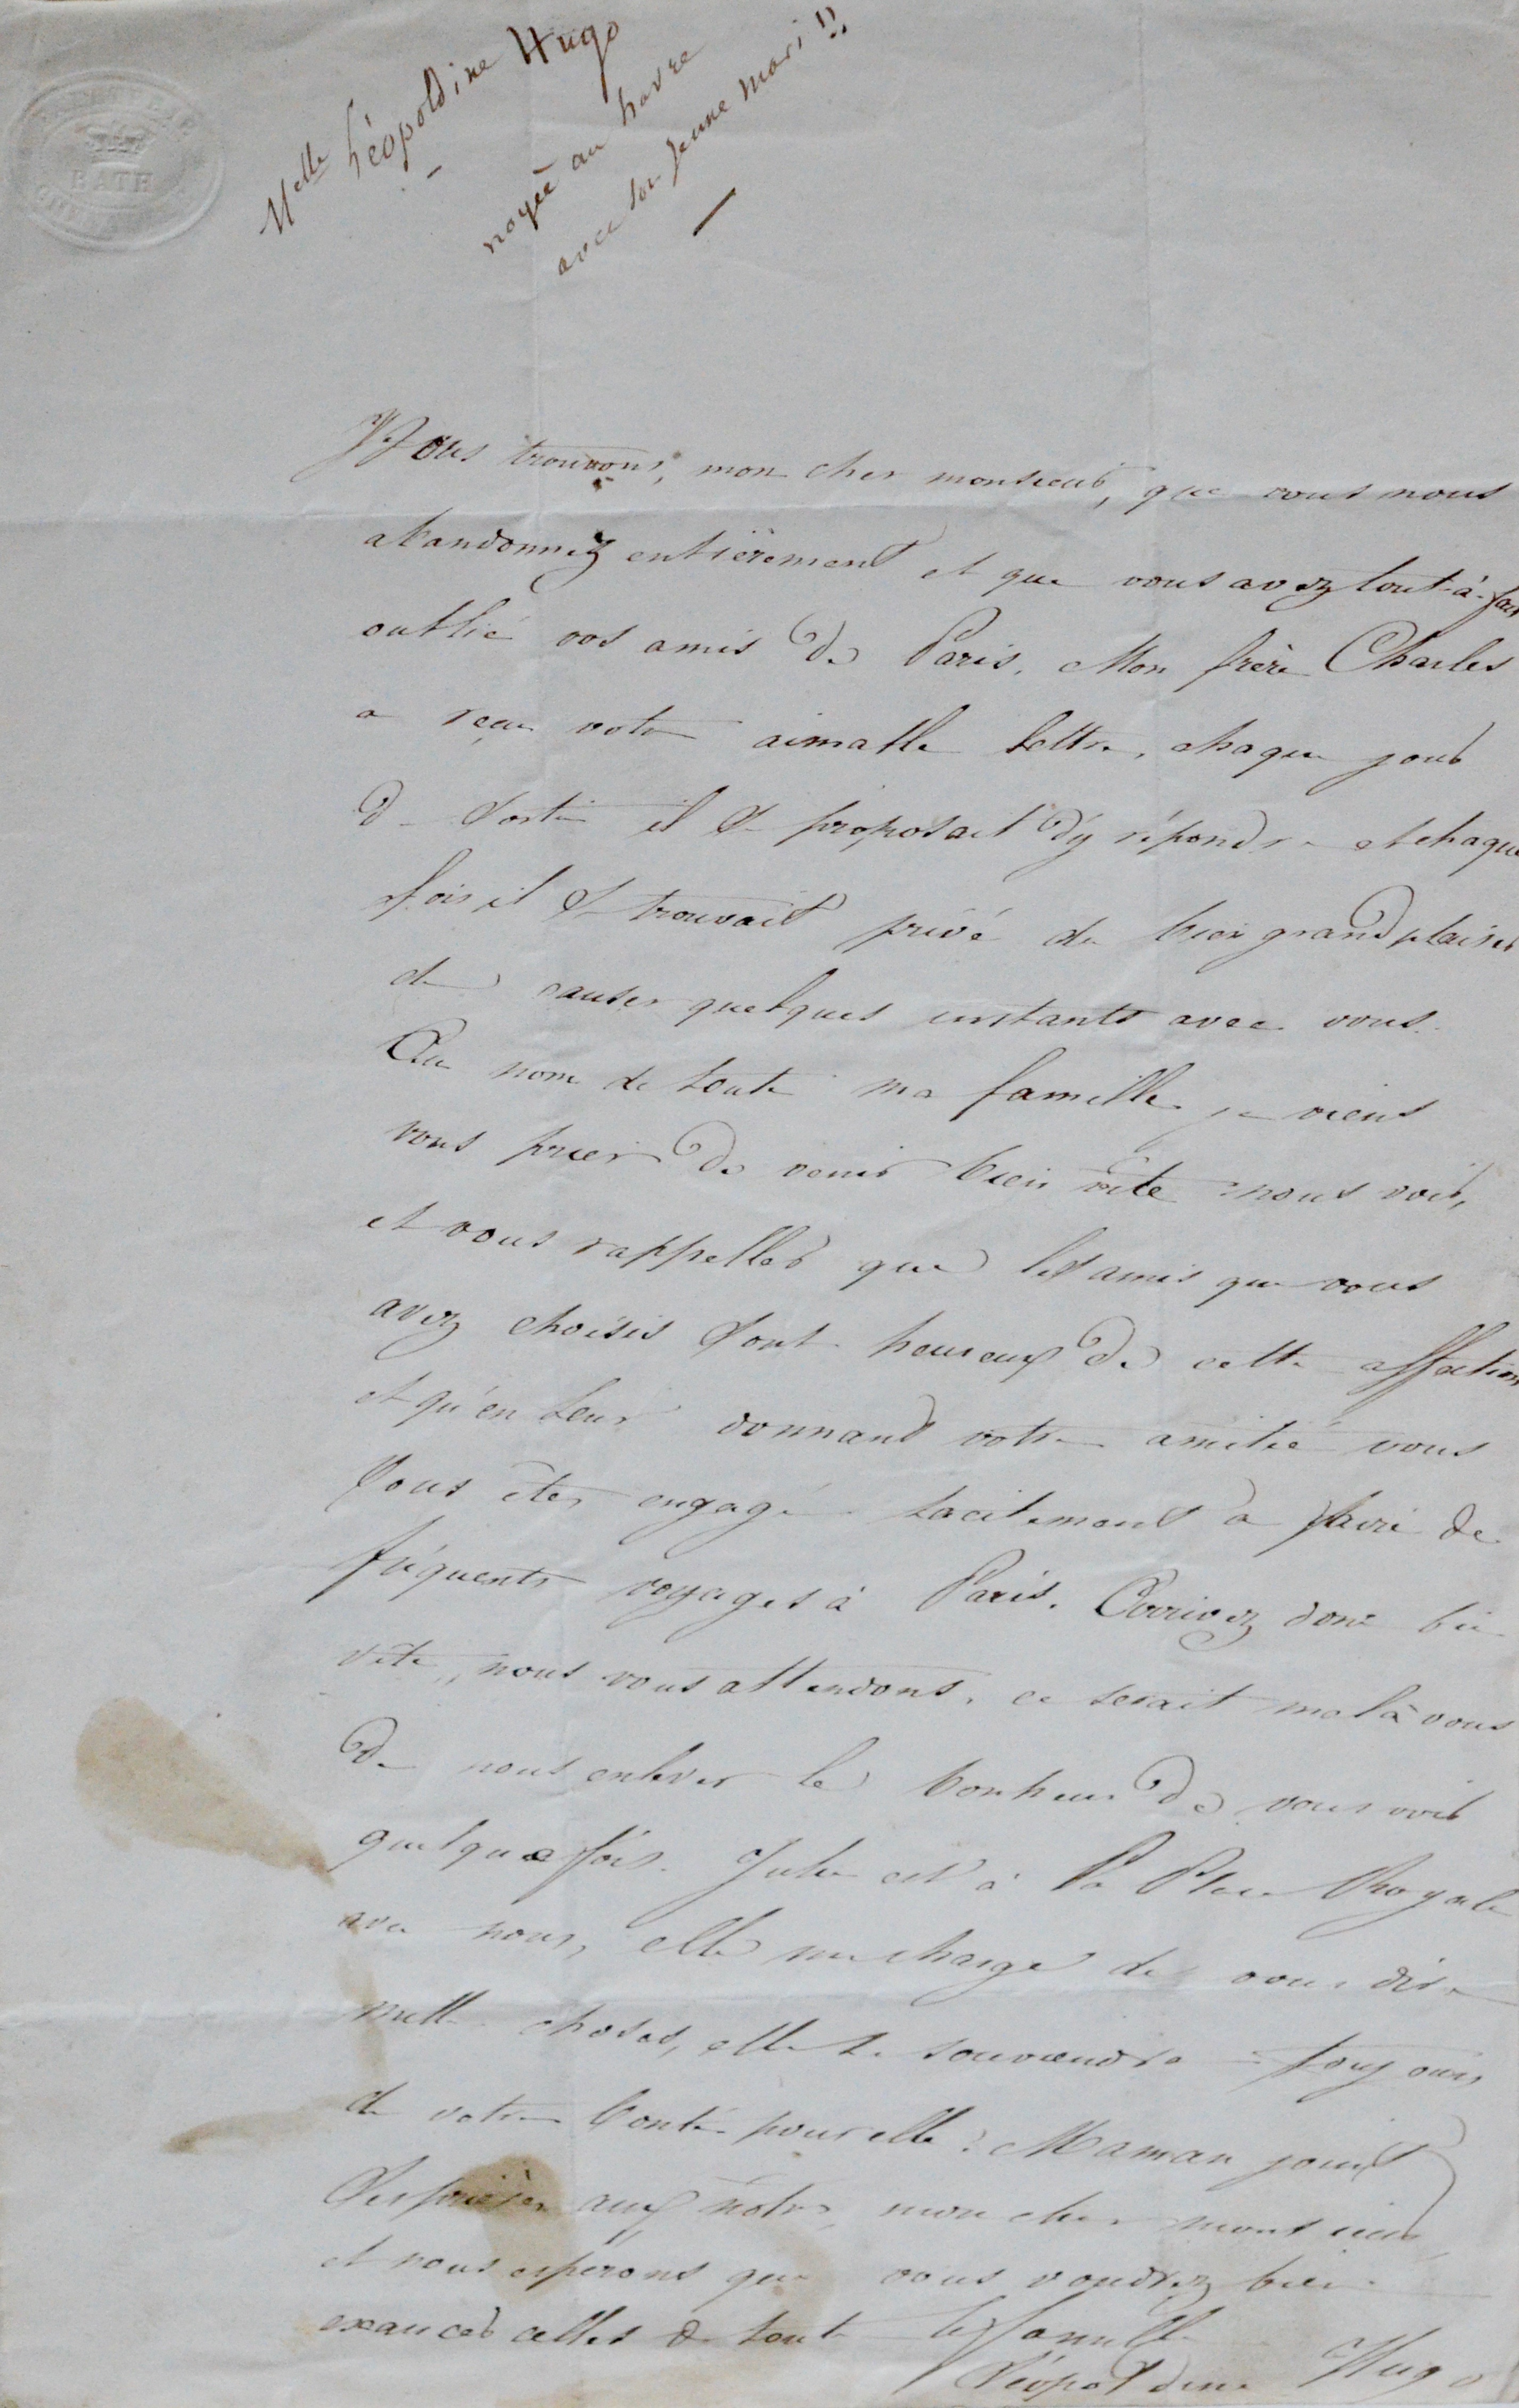 BATH
Melle Léopoldine Hugo
noyée au havre
avec son jeune mari !!
Nous trouvons, mon cher monsieur, que vous nous
abandonnez entièrement et que vous avez tout-à-fait
oublié vos amis de Paris. Mon frère Charles
a reçu votre aimable lettre, chaque jour
de sortie il se proposait d'y répondre et chaque
fois il se trouvait privé du bien grand plaisir
de causer quelques instants avec vous.
Au nom de toute ma famille je viens
vous prier de venir bien vite nous voir,
et vous rappeller que les amis que vous
avez choisis sont heureux de cette affection
et qu'en leur donnant votre amitié vous
vous êtes engagé tacitement à faire de
fréquents voyages à Paris. Arrivez donc bien
vite, nous vous attendons, ce serait mal à vous
de nous enlever le bonheur de vous voir
quelque fois. Julie est à la Place Royale
avec nous, elle me charge de vous dire
mille choses, elle se souviendra toujours
de votre bonté pour elle. Maman joint
ses prières aux notres, mon cher monsieur,
et nous esperons que vous voudrez bien
exaucer celles de toute la famille
Léopoldine Hugo